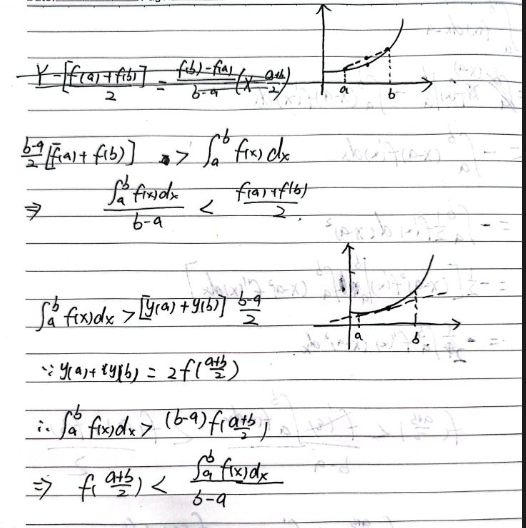 Y - [f(a)+f(b)]/2 = (f(b)-f(a))/(b-a) (x - (a+b)/2)
a b
(b-a)/2 [f(a)+f(b)] > ∫_a^b f(x)dx
⇒ ∫_a^b f(x)dx / (b-a) < (f(a)+f(b))/2.
a b
∫_a^b f(x)dx > [y(a)+y(b)] (b-a)/2
∵ y(a)+y(b) = 2f((a+b)/2)
∴ ∫_a^b f(x)dx > (b-a)f((a+b)/2)
⇒ f((a+b)/2) < ∫_a^b f(x)dx / (b-a)